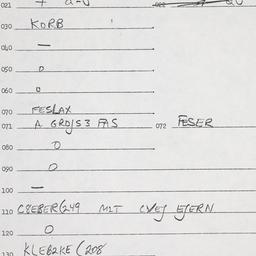 021 + a-u
030 KORB
040 —
050 o
060 o
070 FESLAX
071 A GROJS3 FAS 072 FESER
080 O
090 O
100 —
110 CSEBER(249 MIT CVEJ EJERN
120 O
130 KLEBZKE (208